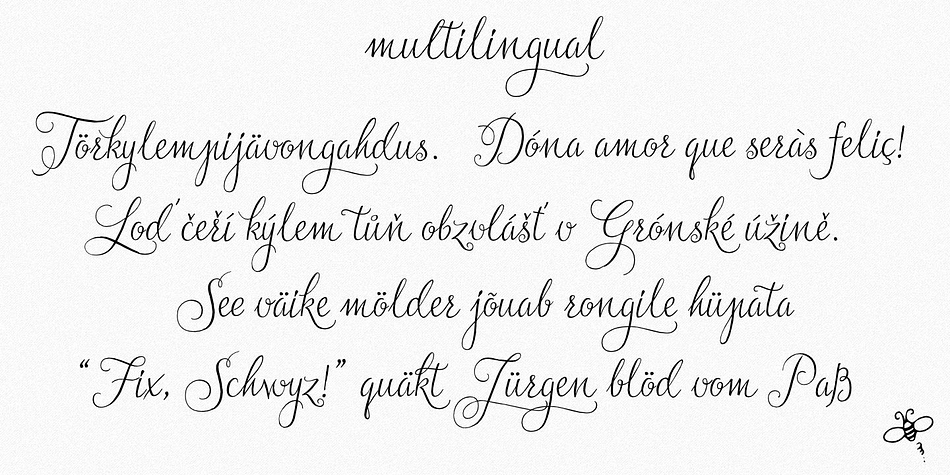 multilingual
Törkylempijävongahdus. Dóna amor que seràs feliç!
Loď čeří kýlem tůň obzvlášť v Grónské úžině.
See väike mölder jõuab rongile hüpata
“Fix, Schwyz!” quäkt Jürgen blöd vom Paß